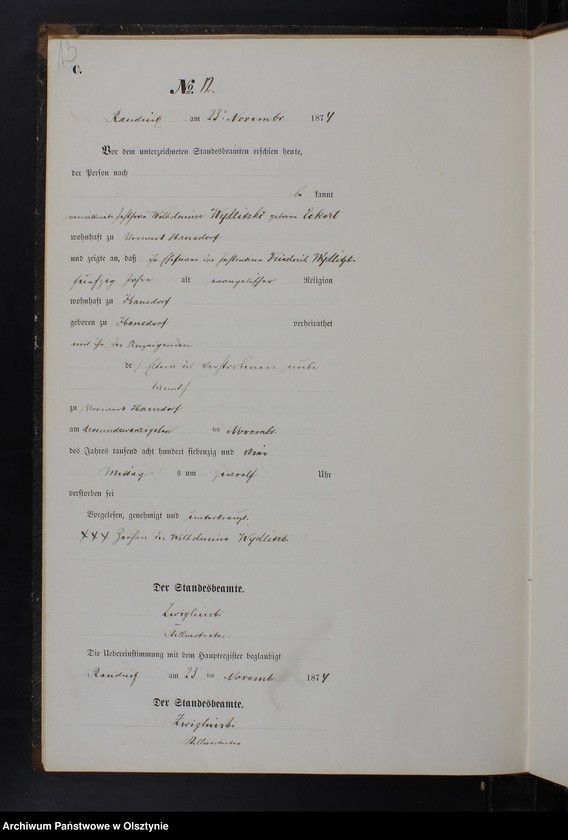 13
C.
No. 12.
Raudnitz am 23. Novembr. 1874
Vor dem unterzeichneten Standesbeamten erschien heute,
der Person nach
kannt
Wilhelmine Wydlitzki geborne Eckert
wohnhaft zu Vorwerk Hansdorf
und zeigte an, daß Friedrich Wydlitzki
fünfzig Jahre alt evangelischer Religion
wohnhaft zu Hansdorf
geboren zu Hansdorf verheirathet
mit der Anzeigenden
Eltern des Verstorbenen unbe
kannt
zu Vorwerk Hansdorf
am dreiundzwanzigsten ten Novembr.
des Jahres tausend acht hundert siebenzig und vier
Mittags um zwoelf Uhr
verstorben sei
Vorgelesen, genehmigt und
XXX Zeichen der Wilhelmine Wydlitzki
Der Standesbeamte.
Stellvertreter
Die Uebereinstimmung mit dem Hauptregister beglaubigt
Raudnitz am 23 ten Novembr. 1874
Der Standesbeamte.
Stellvertreter
Archiwum Państwowe w Olsztynie